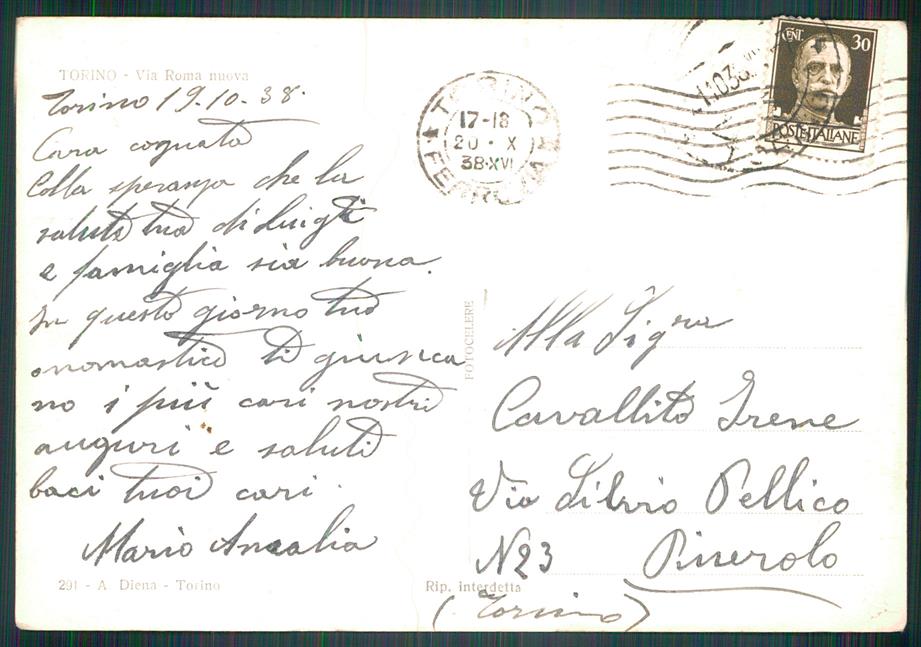 TORINO - Via Roma nuova
Torino 19-10-38.
Cara cognata
Colla speranza che la
salute tua di Luigi
e famiglia sia buona.
In questo giorno tuo
onomastico ti giunca
no i più cari nostri
auguri e saluti
baci tuoi cari.
Mario
291 - A. Diena - Torino
Rip. interdetta
FOTOCELERE
TORINO
17-18
20 · X
38·XVI
FERROVIA
CENT. 30
POSTE ITALIANE
Alla Sigra
Cavallito Irene
Via Silvio Pellico
N23 Pinerolo
(Torino)